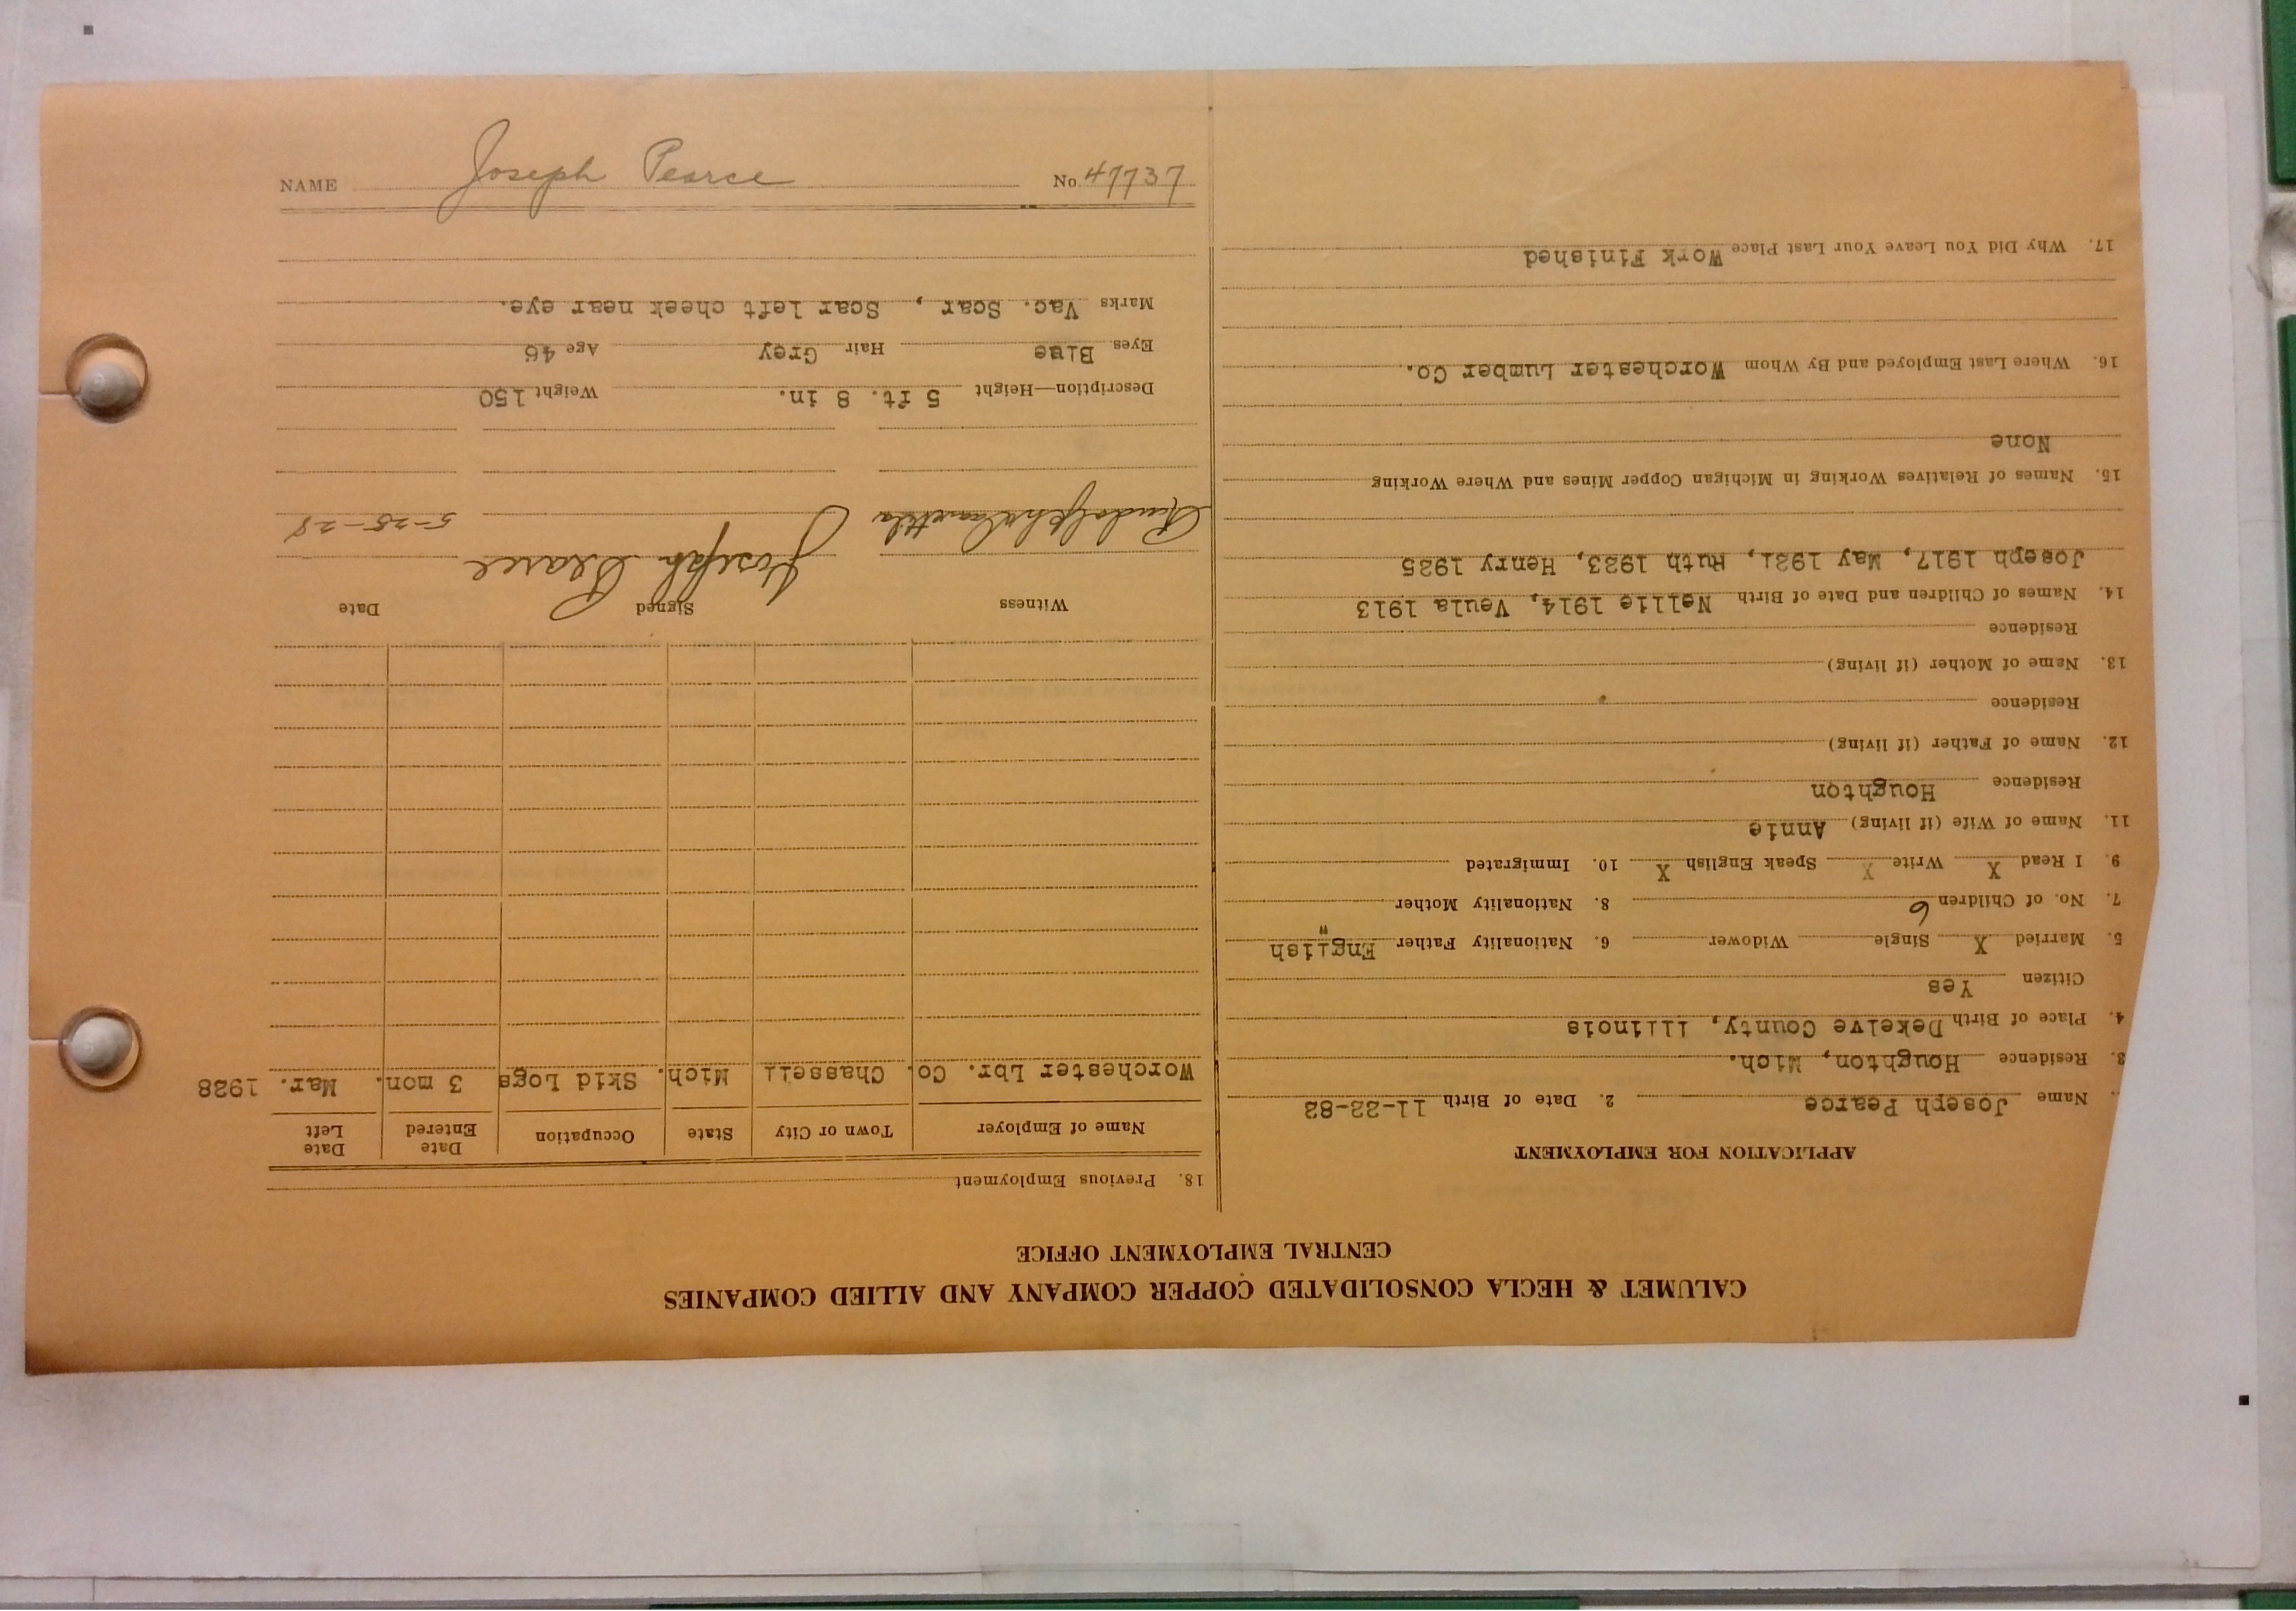 CALUMET & HECLA CONSOLIDATED COPPER COMPANY AND ALLIED COMPANIES
CENTRAL EMPLOYMENT OFFICE
APPLICATION FOR EMPLOYMENT
Name Joseph Pearce 2. Date of Birth 11-22-82
3. Residence Houghton, Mich.
4. Place of Birth Dekelve County, Illinois
Citizen Yes
5. Married X Single Widower 6. Nationality Father English
7. No. of Children 6 8. Nationality Mother "
9. I Read X Write X Speak English X 10. Immigrated
11. Name of Wife (if living) Annie
Residence Houghton
12. Name of Father (if living)
Residence
13. Name of Mother (if living)
Residence
14. Names of Children and Date of Birth Nellie 1914, Veula 1913
Joseph 1917, May 1921, Ruth 1923, Henry 1925
15. Names of Relatives Working in Michigan Copper Mines and Where Working
None
16. Where Last Employed and By Whom Worchester Lumber Co.
17. Why Did You Leave Your Last Place Work Finished
18. Previous Employment
Name of Employer Town or City State Occupation Date Entered Date Left
Worchester Lbr. Co. Chassell Mich. Skid Logs 3 mon. Mar. 1928
Witness Signed Date
Rudolph Joseph Pearce 5-25-28
Description—Height 5 ft. 8 in. Weight 150
Eyes Blue Hair Grey Age 46
Marks Vac. Scar, Scar left cheek near eye.
NAME Joseph Pearce No. 47737